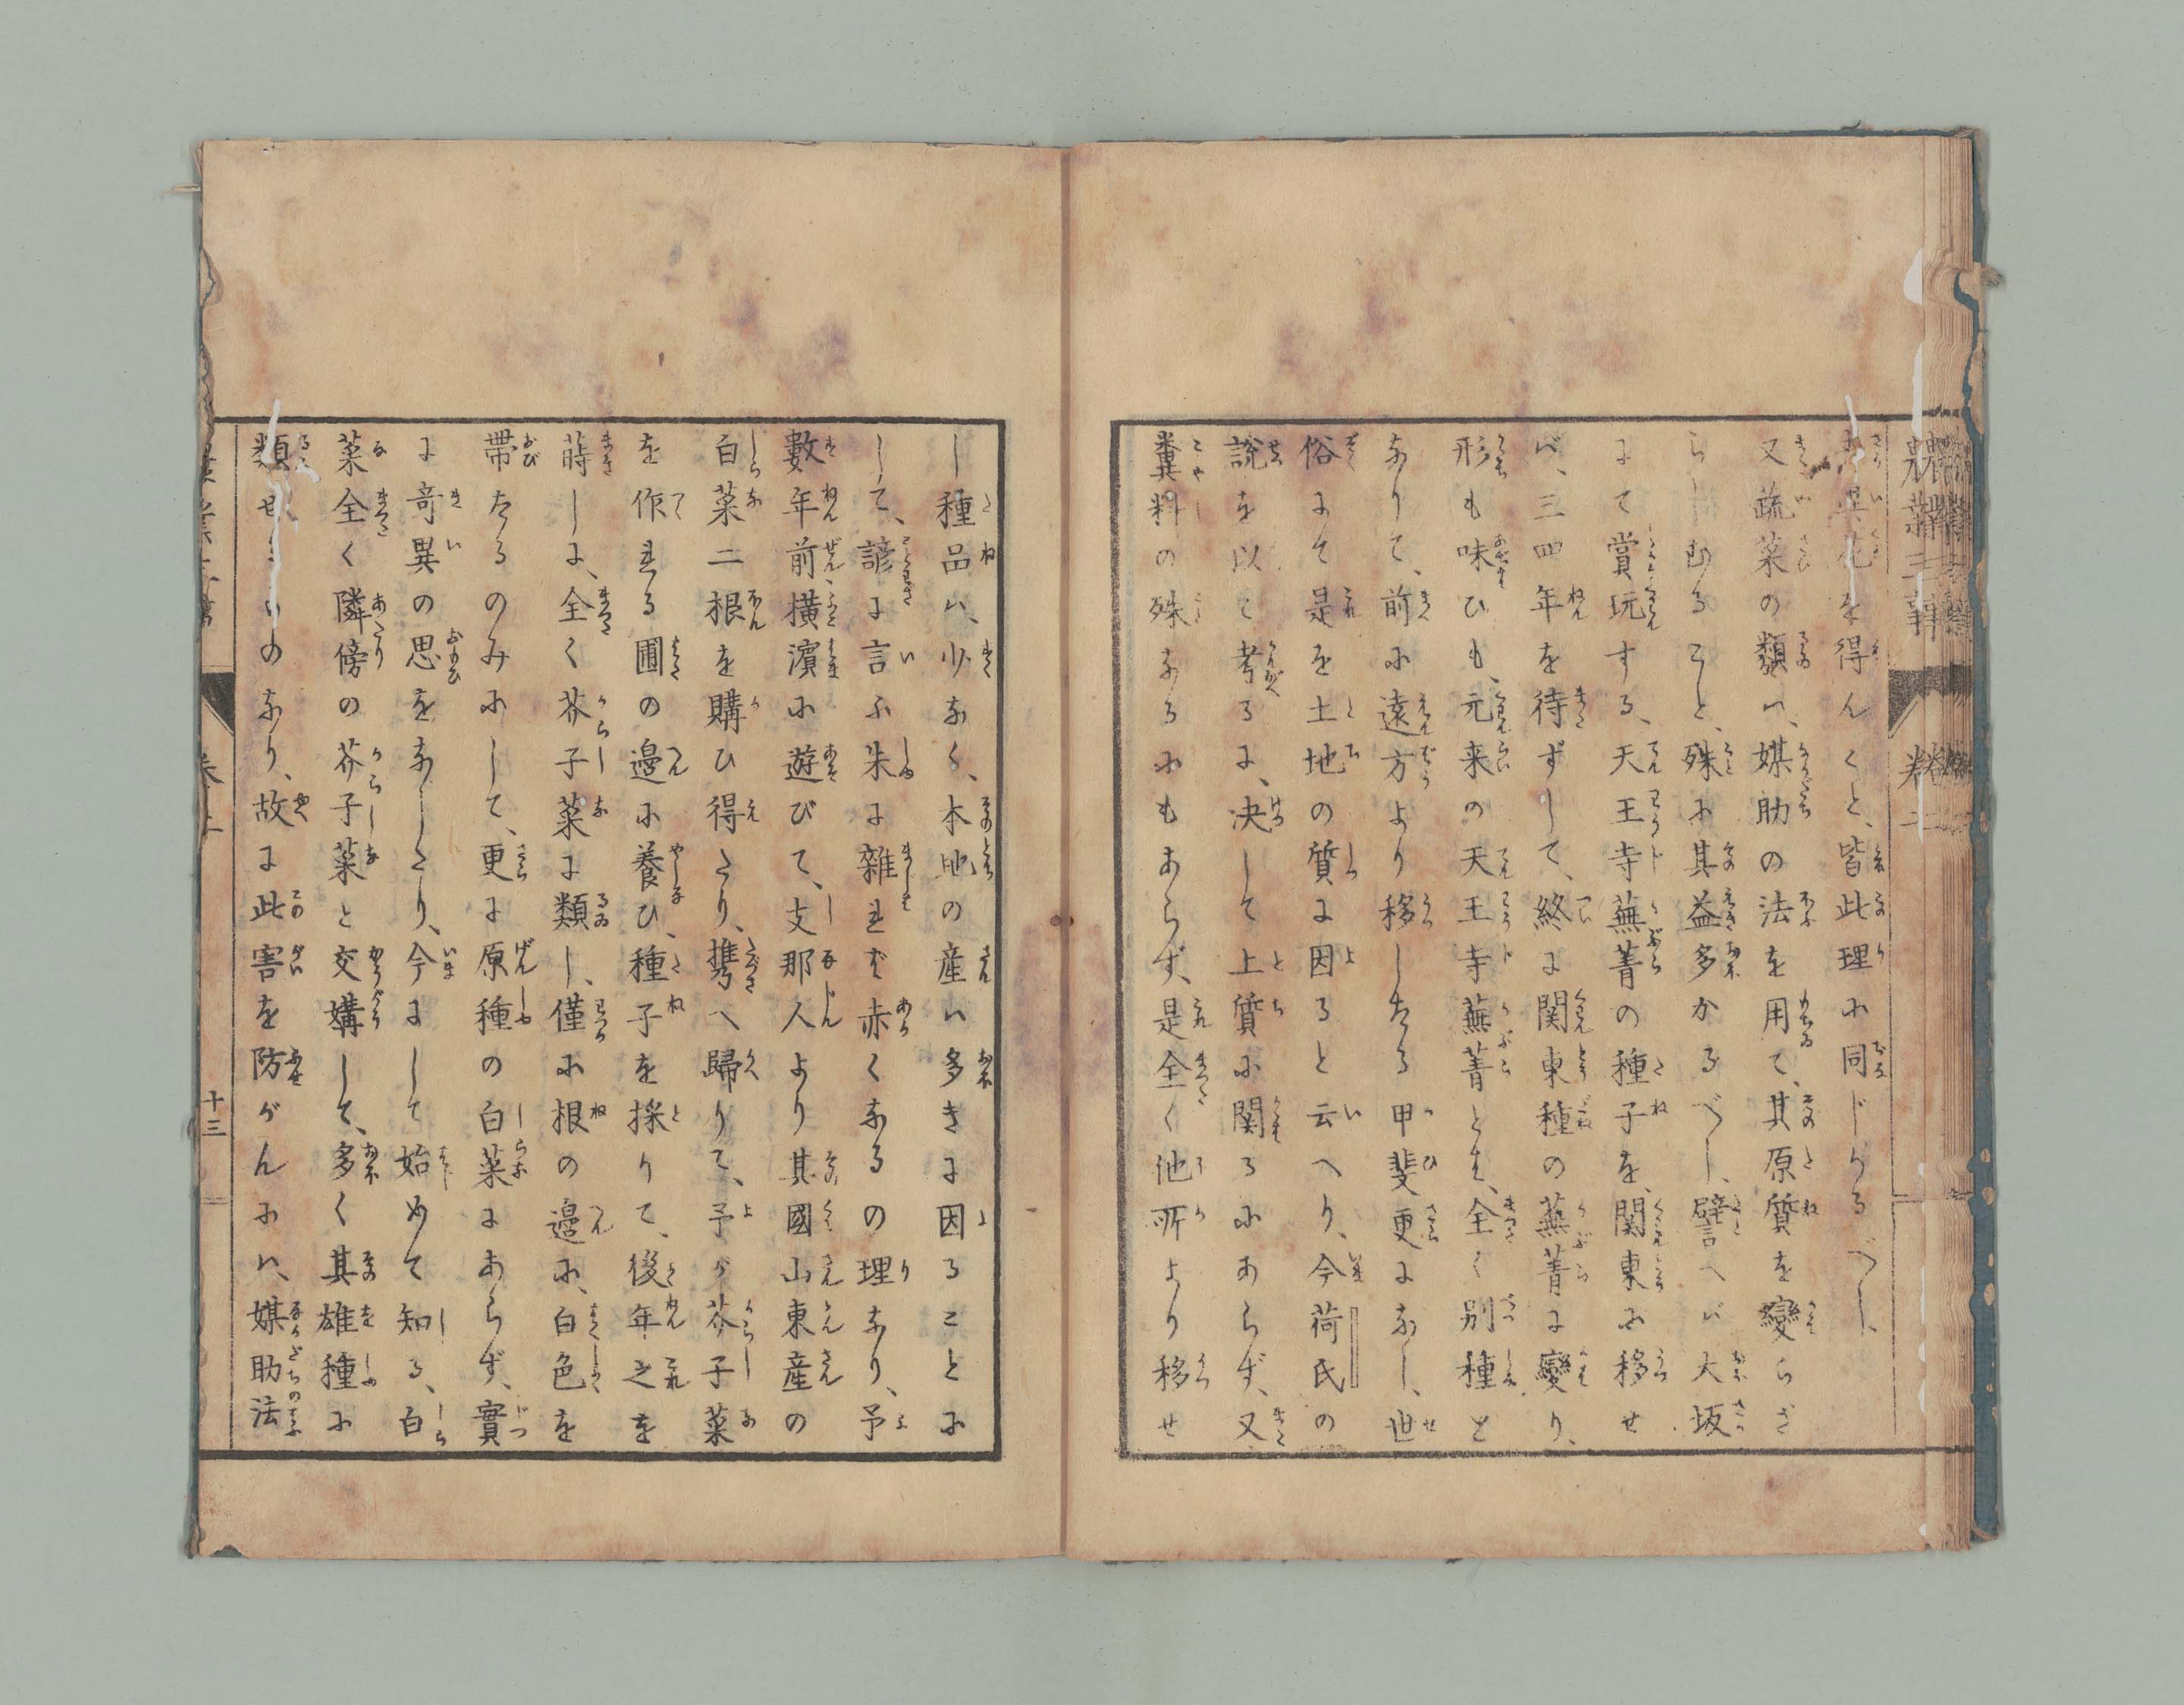 農業三事
卷二
其花を得んくと、皆此理に同じかるべし、
又蔬菜の類ハ、媒助の法を用て、其原質を變らざ
らしむること、殊に其益多かるべし、譬へバ大坂
にて賞玩する、天王寺蕪菁の種子を、関東に移せ
バ、三四年を待ずして、終に関東種の蕪菁に變り、
形も味ひも、元来の天王寺蕪菁とハ、全く別種と
なりて、前に遠方より移したる甲斐更になし、世
俗にて是を土地の質に因ると云へり、今荷氏の
說を以て考るに、决して土質に関るにあらず、又
糞料の殊なるにもあらず、是全く他所より移せ
し種品ハ、少なく、本地の産ハ多きに因ることに
して、諺に言ふ朱に雜れば赤くなるの理なり、予
數年前橫濵に遊びて、支那人より其國山東産の
白菜二根を購ひ得たり、携へ歸りて、予が芥子菜
を作れる圃の邊に養ひ、種子を採りて、後年之を
蒔しに、全く芥子菜に類し、僅に根の邊に、白色を
帶たるのみにして、更に原種の白菜にあらず、實
に竒異の思をなしたり、今にして始めて知る、白
菜全く隣傍の芥子菜と交媾して、多く其雄種に
類せしものなり、故に此害を防がんにハ、媒助法
十三